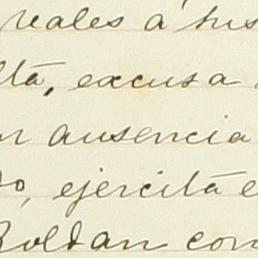 reales á sus
ltá, excusa
ausencia
do, ejercitá e
Roldan con